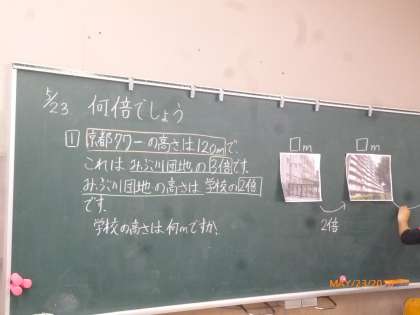 5/23 何倍でしょう
1 京都タワーの高さは120mで、
これはみぶ川団地の3倍です。
みぶ川団地の高さは学校の2倍
です。
学校の高さは何mですか。
□m
□m
2倍
MAY/23/20